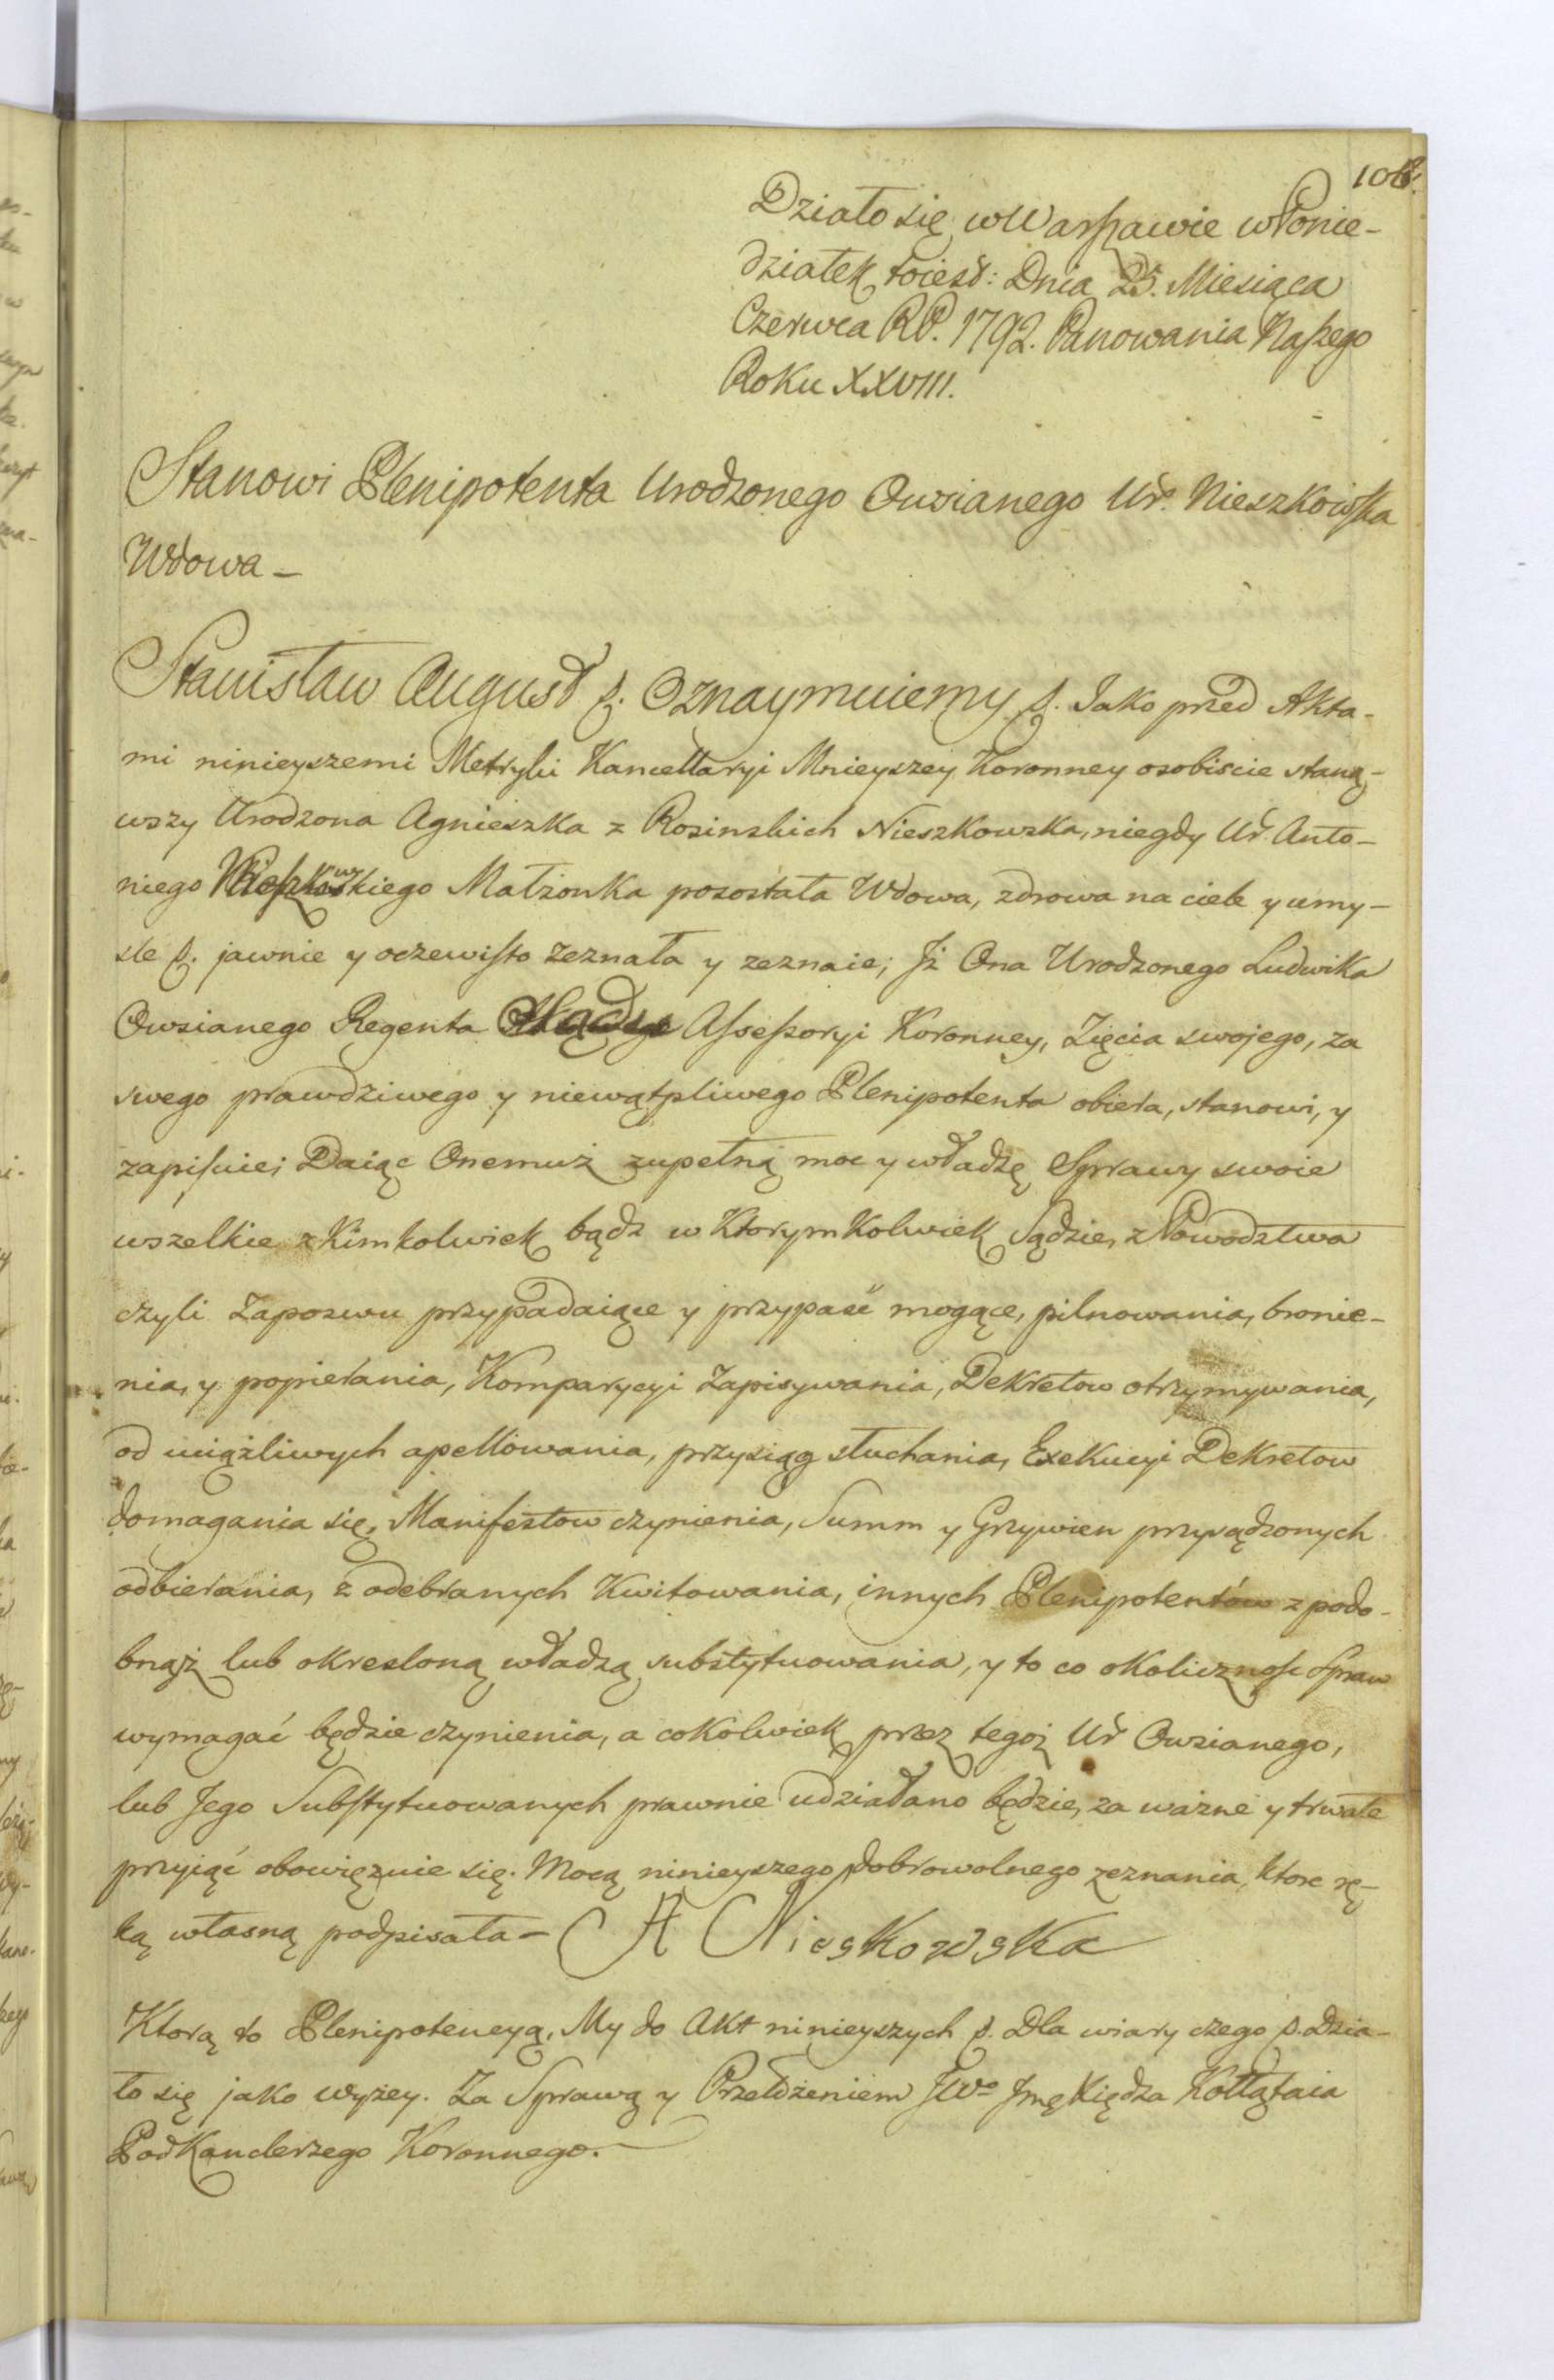 106.
Działo się w Warszawie w Ponie-
działek toiest: Dnia 25. Miesiąca
Czerwca RP. 1792. Panowania Naszego
Roku XXVIII.
Stanowi Plenipotenta Urodzonego Owsianego Ur. Nieszkowska
Wdowa –
Stanisław August p. Oznaymuiemy p. Jako przed Akta-
mi ninieyszemi Metryki Kancellaryi Mnieyszey Koronney osobiscie staną-
wszy Urodzona Agnieszka z Rosinskich Nieszkowska, niegdy Ur. Anto-
niego Nieszkowskiego Małżonka pozostała Wdowa, zdrowa na ciele y umy-
sle p. jawnie y oczewisto zeznała y zeznaie; Jż Ona Urodzonego Ludwika
Owsianego Regenta Assessoryi Koronney, Zięcia swojego, za
swego prawdziwego y niewątpliwego Plenipotenta obiera, stanowi, y
zapisuie; Daiąc Onemuż zupełną moc y władzę Sprawy swoie
wszelkie z Kimkolwiek bądz w Ktorymkolwiek Sądzie, z Powodztwa
czyli Zapozwu przypadaiące y przypaść mogące, pilnowania, bronie-
nia, y popierania, Komparycyi Zapisywania, Dekretow otrzymywania,
od uciążliwych apellowania, przysiąg słuchania, Exekucyi Dekretow
domagania się, Manifestow czynienia, Summ y Grzywien przysądzonych
odbierania, z odebranych Kwitowania, innych Plenipotentów z podo-
bnąż lub okresloną władzą substytuowania, y to co okolicznosc Spraw
wymagać będzie czynienia, a cokolwiek przez tegoż Ur Owsianego,
lub Jego Substytuowanych prawnie udziałano będzie, za ważne y trwałe
przyiąć obowięzuie się. Mocą ninieyszego dobrowolnego zeznania, ktore rę-
ką własną podpisała – A Nieskowska
Ktorą to Plenipotencyą, My do Akt ninieyszych p. Dla wiary czego p. Dzia-
ło się jako wyżey. Za Sprawą y Przełożeniem JWo Jmć Xiędza Kołłątaia
PodKanclerzego Koronnego.